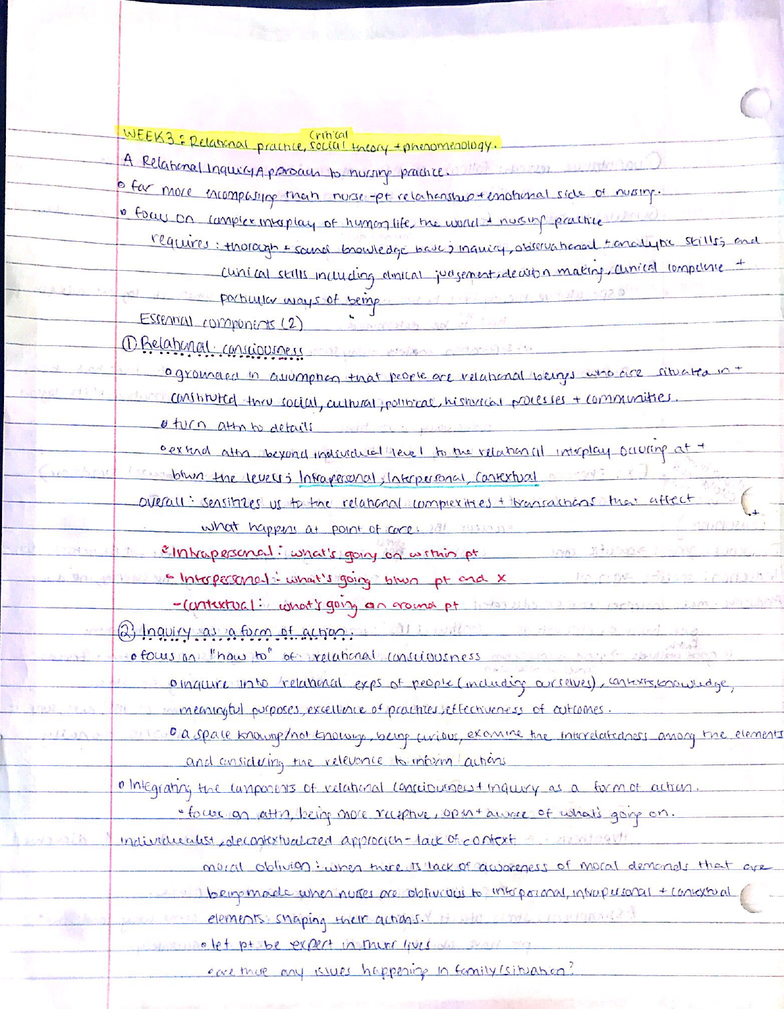 WEEK 3: Relational practice, critical social theory + phenomenology.
A Relational Inquiry Aproach to nursing practice.
far more encompasing than nurse-pt relationship + emotional side of nursing.
focus on complex interplay of human life, the world + nursing practice
requires: thorough + sound knowledge base; inquiry, observational + analytic skills; and
clinical skills including clinical judgement, decision making, clinical competence +
particular ways of being
Essential components (2)
① Relational consciousness
grounded in assumption that people are relational beings who are situated in +
constituted thru social, cultural, political, historical processes + communities.
turn attn to details
extend attn beyond individual level to the relational interplay occuring at +
btwn the levels; Intrapersonal, Interpersonal, Contextual
overall: sensitizes us to the relational complexities + transactions that affect
what happens at point of care.
Intrapersonal: what's going on within pt
- Interpersonal: what's going btwn pt and x
- contextual: what's going on around pt
② Inquiry as a form of action.
focus on "how to" of relational consciousness
inquire into relational exps of people (including ourselves), contexts, knowledge,
meaningful purposes, excellence of practices, effectiveness of outcomes.
a space knowing/not knowing, being curious, examine the interrelatedness among the elements
and considering the relevance to inform actions
Integrating the components of relational consciousness + inquiry as a form of action.
focus on attn, being more receptive, open + aware of what's going on.
individualist, decontextualized approach - lack of context
moral oblivion: when there is lack of awareness of moral demands that are
being made when nurses are oblivious to interpersonal, intrapersonal + contextual
elements shaping their actions.
let pt be expert in their lives
are there any issues happening in family/situation?